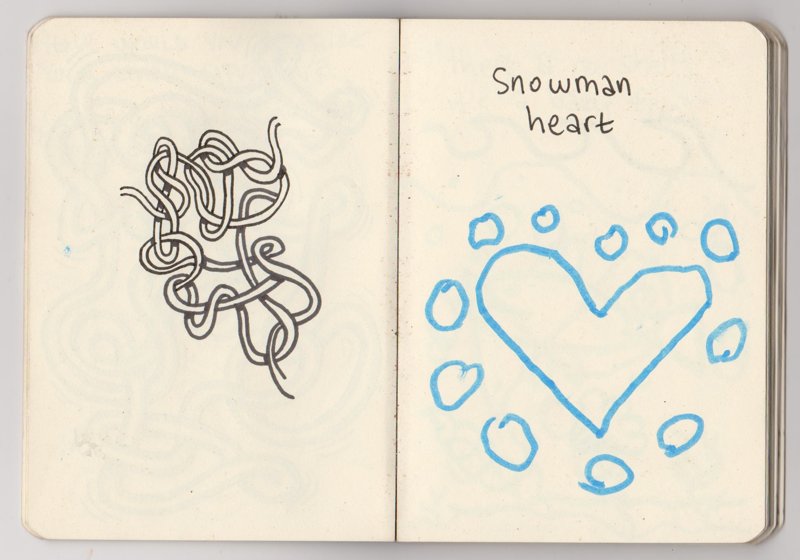 Snowman
heart